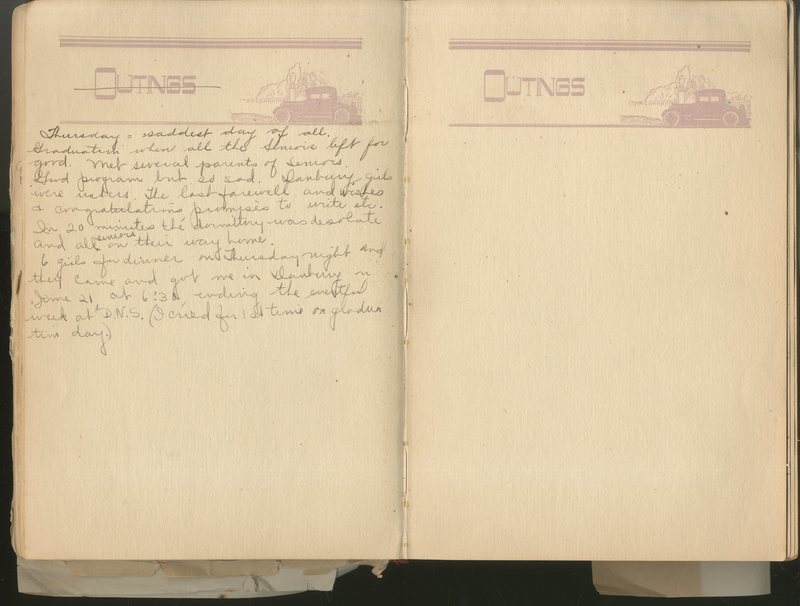 OUTINGS
Thursday = saddest day of all.
Graduation when all the Seniors left for
good. Met several parents of Seniors.
Good program but so sad. Danbury girls
were ushers. The last farewell, and wishes
& congratulations promises to write etc.
In 20 minutes the dormitory was desolate
and all seniors on their way home.
6 girls for dinner on Thursday night and
they came and got me in Danbury on
June 21, at 6:30, ending the eventful
week at D.N.S. (I cried for 1st time on gradua
tion day.)
OUTINGS